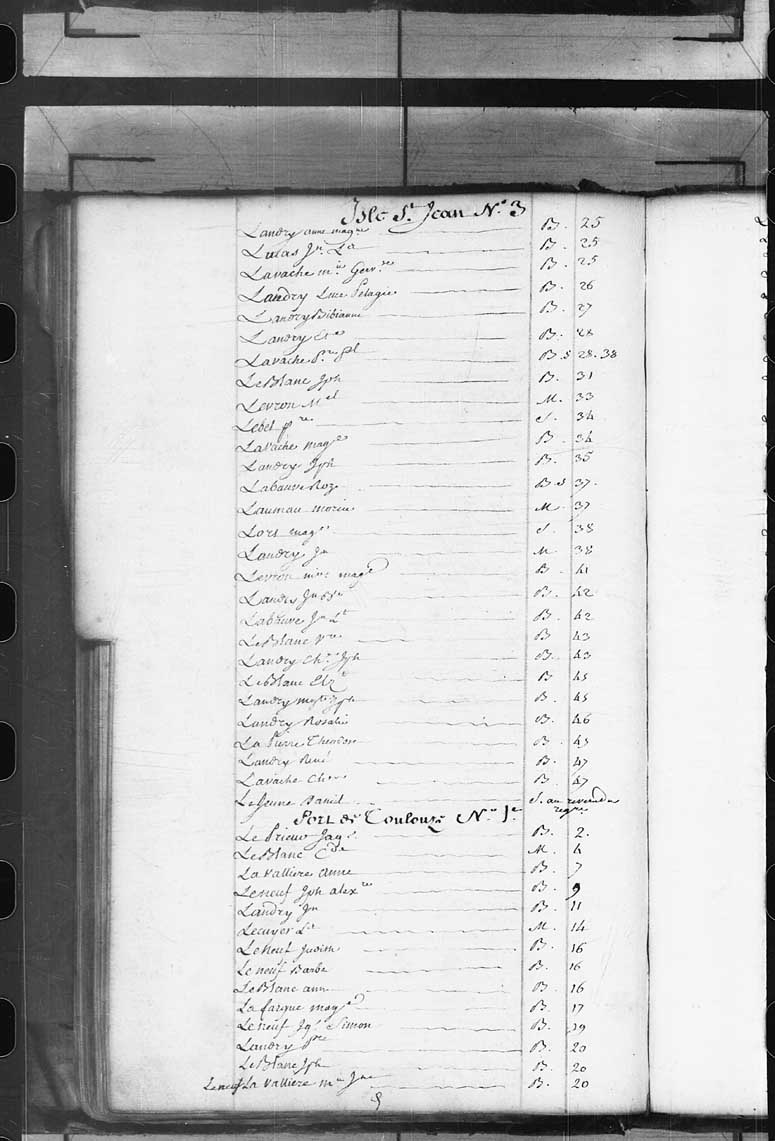 Isle St Jean No 3
Landry anne magne B. 25
Lucas Jn La B. 25
Lavache mie Genve B. 25
Landry Luce Pelagie B. 26
Landry Bibianne B. 27
Landry B. 28
Lavache Pre B S 28.38
Le Blanc Jph B. 31
Levron Mel M. 33
Lebel pre S. 34
Lavache magte B. 34
Landry Jph B. 35
Labauve Roze B S 37.
Laumau M. 37
Lors magte S. 38
Landry Jn M. 38
magte B. 41
Landry Jn B. 42
Labauve Jn Bt B. 42
Le Blanc B. 43
Landry Chs Jph B. 43
Le Blanc Elz B 45
Landry Jph B. 45
Landry Rosalie B. 46
La Pierre Theodore B. 45
Landry René B. 47
Lavache B. 47
Le Jeune Daniel S. au revers du regre
Port de Toulouze No 1e
Le Prieur B. 2.
Le Blanc M. 4
La Valliere anne B. 7
Leneuf Jph alexre B. 9
Landry Jn B. 11
Lecuyer Ls M. 14
Leneuf Judith B. 16
Le neuf Barbe B. 16
Le Blanc ann B. 16
La fargue magte B. 17
Le neuf Jqs Simon B. 19
Landry pre B. 20
Le Blanc Jph B. 20
Leneuf La Valliere mie B. 20